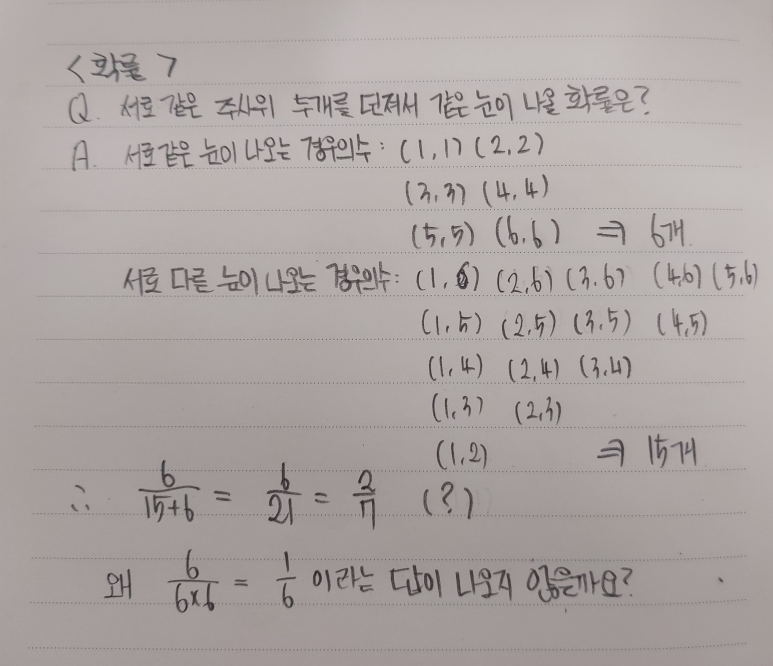 <확률>
Q. 서로 같은 주사위 두개를 던져서 같은 눈이 나올 확률은?
A. 서로 같은 눈이 나오는 경우의수 : (1,1) (2,2)
(3,3) (4,4)
(5,5) (6,6) ⇒ 6개
서로 다른 눈이 나오는 경우의수 : (1,6) (2,6) (3,6) (4,6) (5,6)
(1,5) (2,5) (3,5) (4,5)
(1,4) (2,4) (3,4)
(1,3) (2,3)
(1,2) ⇒ 15개
∴ 6/(15+6) = 6/21 = 2/7 (?)
왜 6/(6×6) = 1/6 이라는 답이 나오지 않은까요?